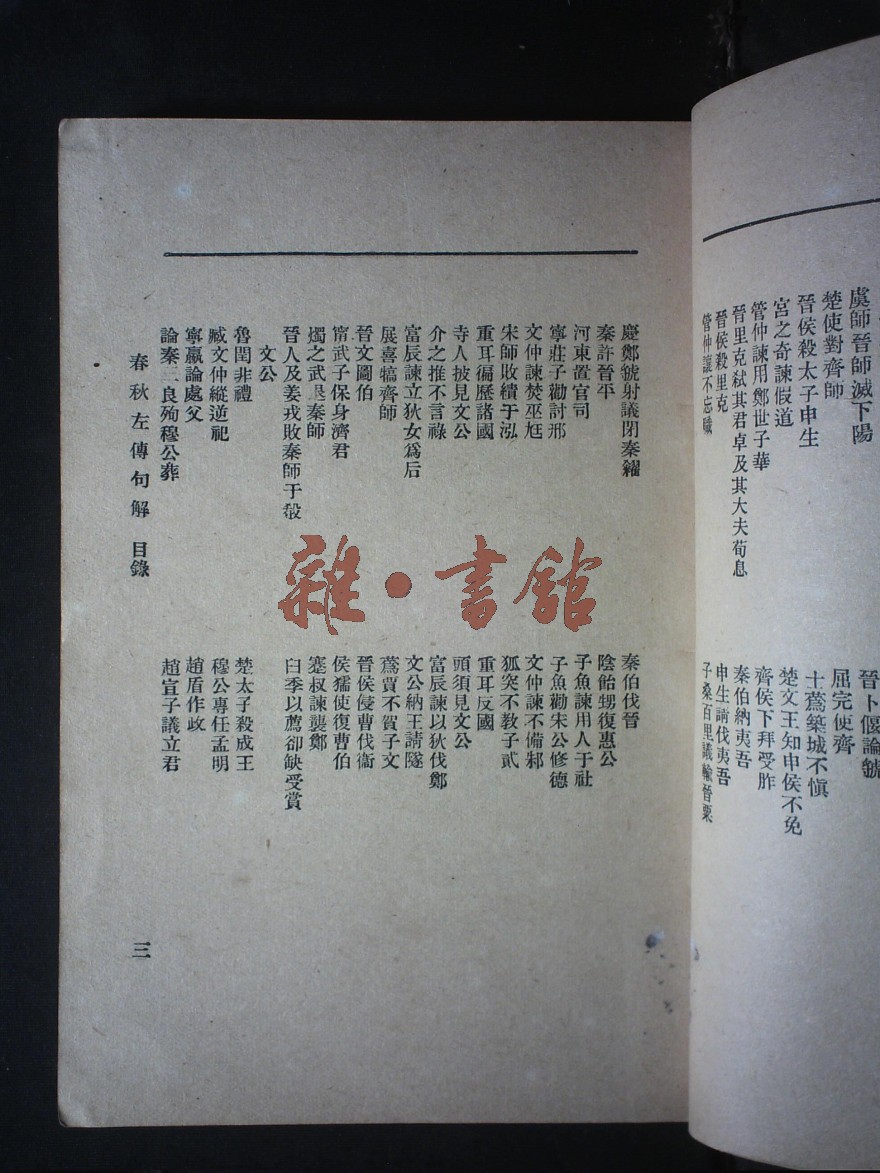 虞師晉師滅下陽
楚使對齊師
晉侯殺太子申生
宮之奇諫假道
管仲諫用鄭世子華
晉里克弑其君卓及其大夫荀息
晉侯殺里克
管仲讓不忘職
晉卜偃論虢
屈完使齊
士蒍築城不愼
楚文王知申侯不免
齊侯下拜受胙
秦伯納夷吾
申生請伐夷吾
子桑百里議輸晉粟
慶鄭虢射議閉秦糴
秦許晉平
河東置官司
寧莊子勸討邢
文仲諫焚巫尫
宋師敗績于泓
重耳徧歷諸國
寺人披見文公
介之推不言祿
富辰諫立狄女爲后
展喜犒齊師
晉文圖伯
甯武子保身濟君
燭之武退秦師
晉人及姜戎敗秦師于殽
文公
魯閏非禮
臧文仲縱逆祀
寧嬴論處父
論秦三良殉穆公葬
秦伯伐晉
陰飴甥復惠公
子魚諫用人于社
子魚勸宋公修德
文仲諫不備邾
狐突不教子貳
重耳反國
頭須見文公
富辰諫以狄伐鄭
文公納王請隧
蒍賈不賀子文
晉侯侵曹伐衞
侯獳使復曹伯
蹇叔諫襲鄭
臼季以薦卻缺受賞
楚太子殺成王
穆公專任孟明
趙盾作政
趙宣子議立君
春秋左傳句解 目錄
三
雜·書館